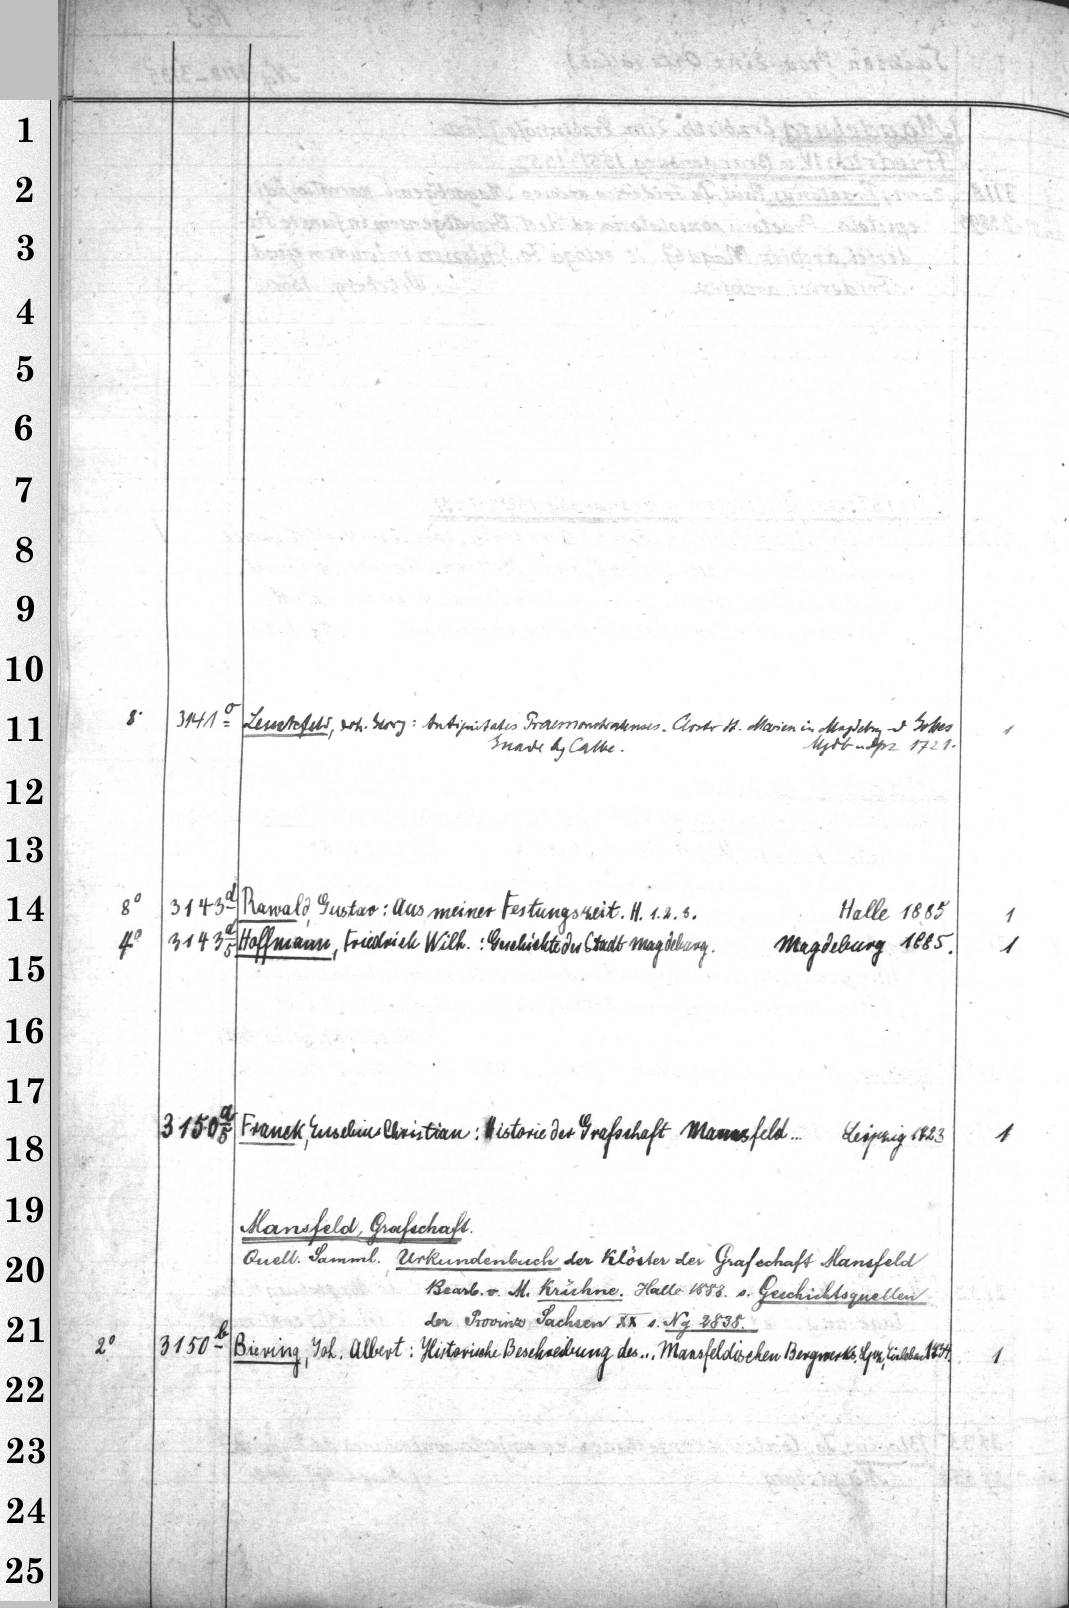 1
2
3
4
5
6
7
8
9
10
11
12
13
14
15
16
17
18
19
20
21
22
23
24
25
8° 3141 Leuckfeld, Joh. Georg: Antiquitates Praemonstratenses. Closter St. Marien in Magdebg u Gottes 1
Gnade by Calbe. Mgdb u Lpz 1721.
8° 3143 d Rawald, Gustav: Aus meiner Festungszeit. H. 1. 2. 3. Halle 1885 1
4° 3143 Hoffmann, Friedrich Wilh.: Geschichte der Stadt Magdeburg. Magdeburg 1885. 1
3150 a Franck, Eusebius Christian: Historie der Grafschaft Mannsfeld... Leipzig 1723 1
Mansfeld, Grafschaft.
Quell. Samml. Urkundenbuch der Klöster der Grafschaft Mansfeld
Bearb. v. M. Krühne. Halle 1888. s. Geschichtsquellen
der Provinz Sachsen XX s. Ng 2838.
2° 3150 b Biering, Joh. Albert: Historische Beschreibung des... Mansfeldischen Bergwerks. Lpz, Eisleben 1734. 1